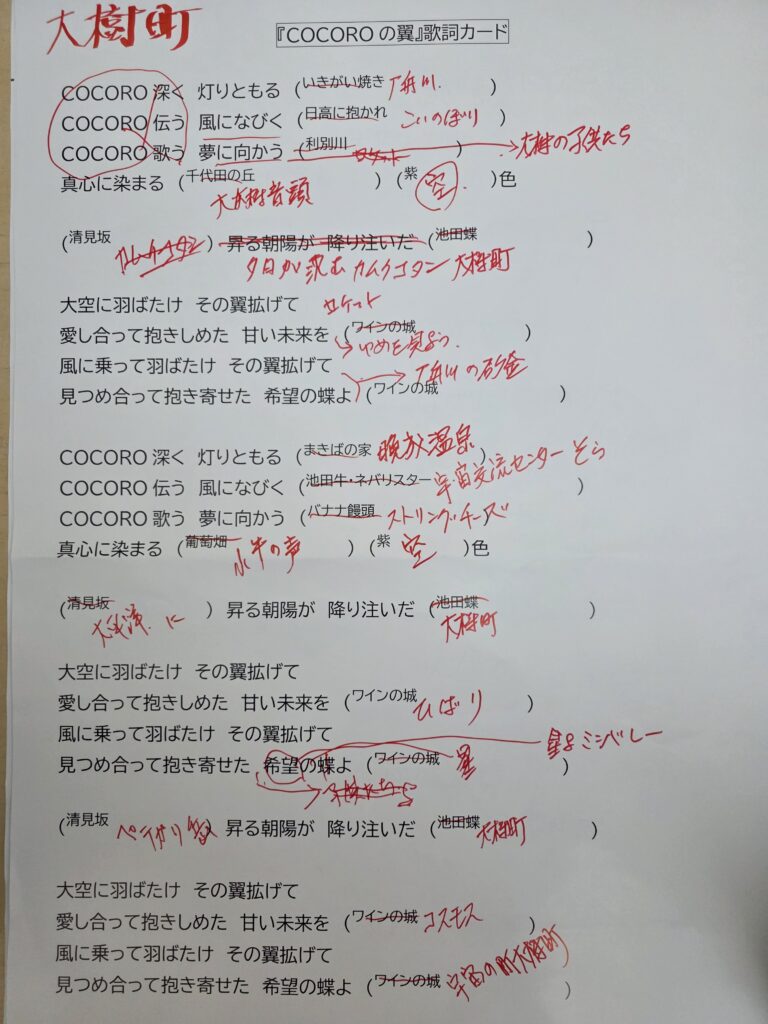 大樹町 『COCOROの翼』歌詞カード
COCORO 深く 灯りともる (いきがい焼き 川 )
COCORO 伝う 風になびく (日高に抱かれ こいのぼり )
COCORO 歌う 夢に向かう (利別川 ロケット ) 大樹の子供たち
真心に染まる (千代田の丘 大樹音頭 ) (紫 空 )色
(清見坂 カムイコタン ) 昇る朝陽が 降り注いだ (池田蝶 )
夕日が沈む カムイコタン 大樹町
大空に羽ばたけ その翼拡げて ロケット
愛し合って抱きしめた 甘い未来を (ワインの城 )
ゆめを見よう
風に乗って羽ばたけ その翼拡げて 川の砂金
見つめ合って抱き寄せた 希望の蝶よ (ワインの城 )
COCORO 深く 灯りともる (まきばの家 晩成温泉 )
COCORO 伝う 風になびく (池田牛・ネバリスター 宇宙交流センター そら )
COCORO 歌う 夢に向かう (バナナ饅頭 ストリングチーズ )
真心に染まる (葡萄畑 水牛の声 ) (紫 空 )色
(清見坂 太平洋に ) 昇る朝陽が 降り注いだ (池田蝶 大樹町 )
大空に羽ばたけ その翼拡げて
愛し合って抱きしめた 甘い未来を (ワインの城 ひばり )
風に乗って羽ばたけ その翼拡げて
見つめ合って抱き寄せた 希望の蝶よ (ワインの城 星 )
子供たち
(清見坂 ペテガリ ) 昇る朝陽が 降り注いだ (池田蝶 大樹町 )
大空に羽ばたけ その翼拡げて
愛し合って抱きしめた 甘い未来を (ワインの城 コスモス )
風に乗って羽ばたけ その翼拡げて
見つめ合って抱き寄せた 希望の蝶よ (ワインの城 宇宙の町大樹町 )